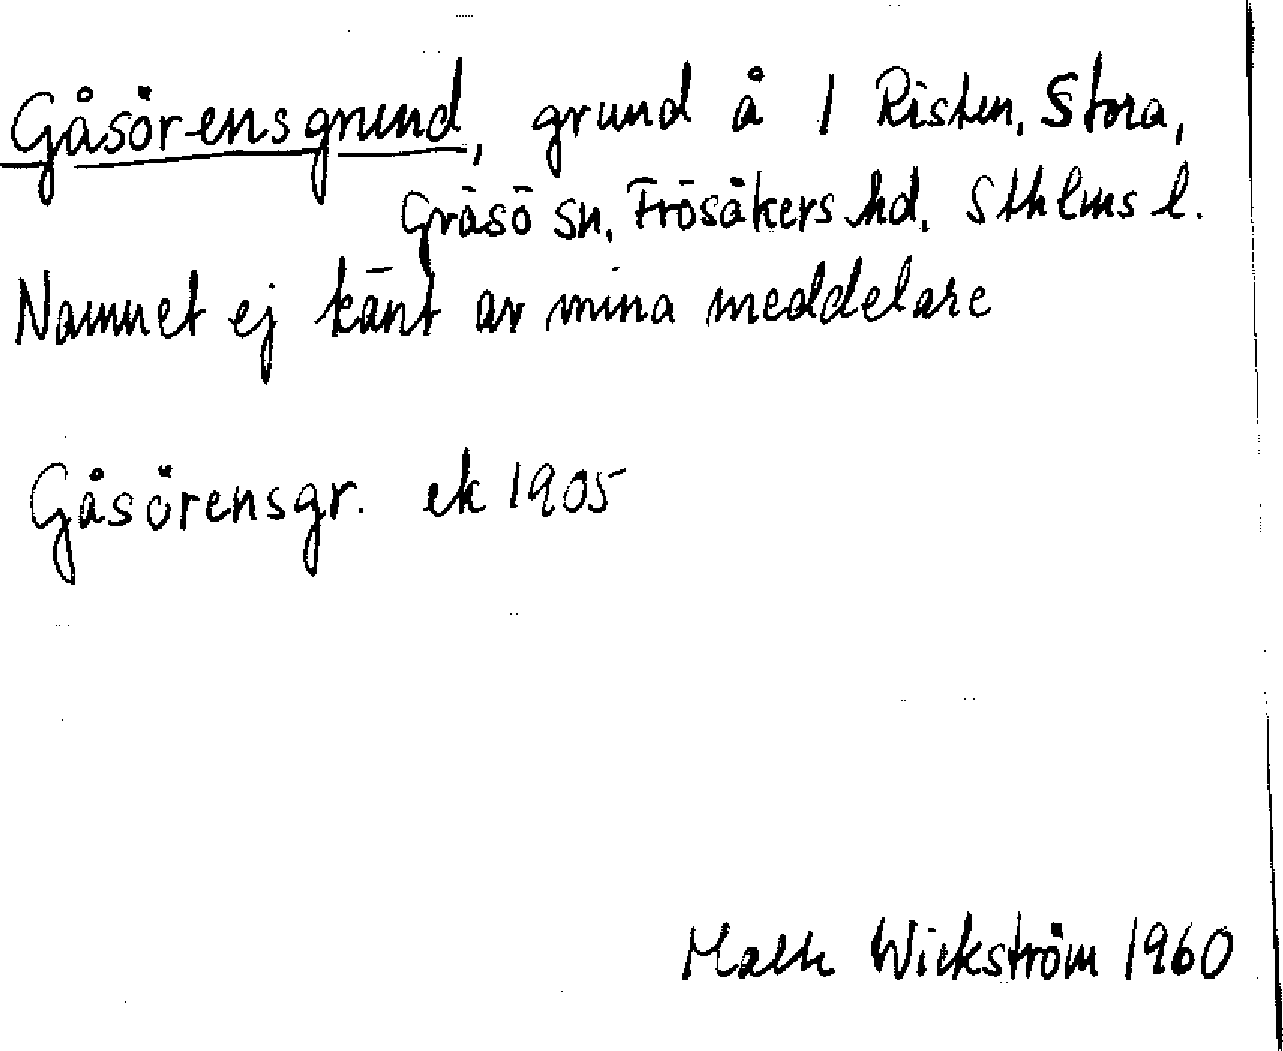 Gåsörensgrund, grund å 1 Risten, Stora,
Gräsö sn, Frösåkers hd, Sthlms l.
Namnet ej känt av mina meddelare
Gåsörensgr. ek 1905
Wickström 1960